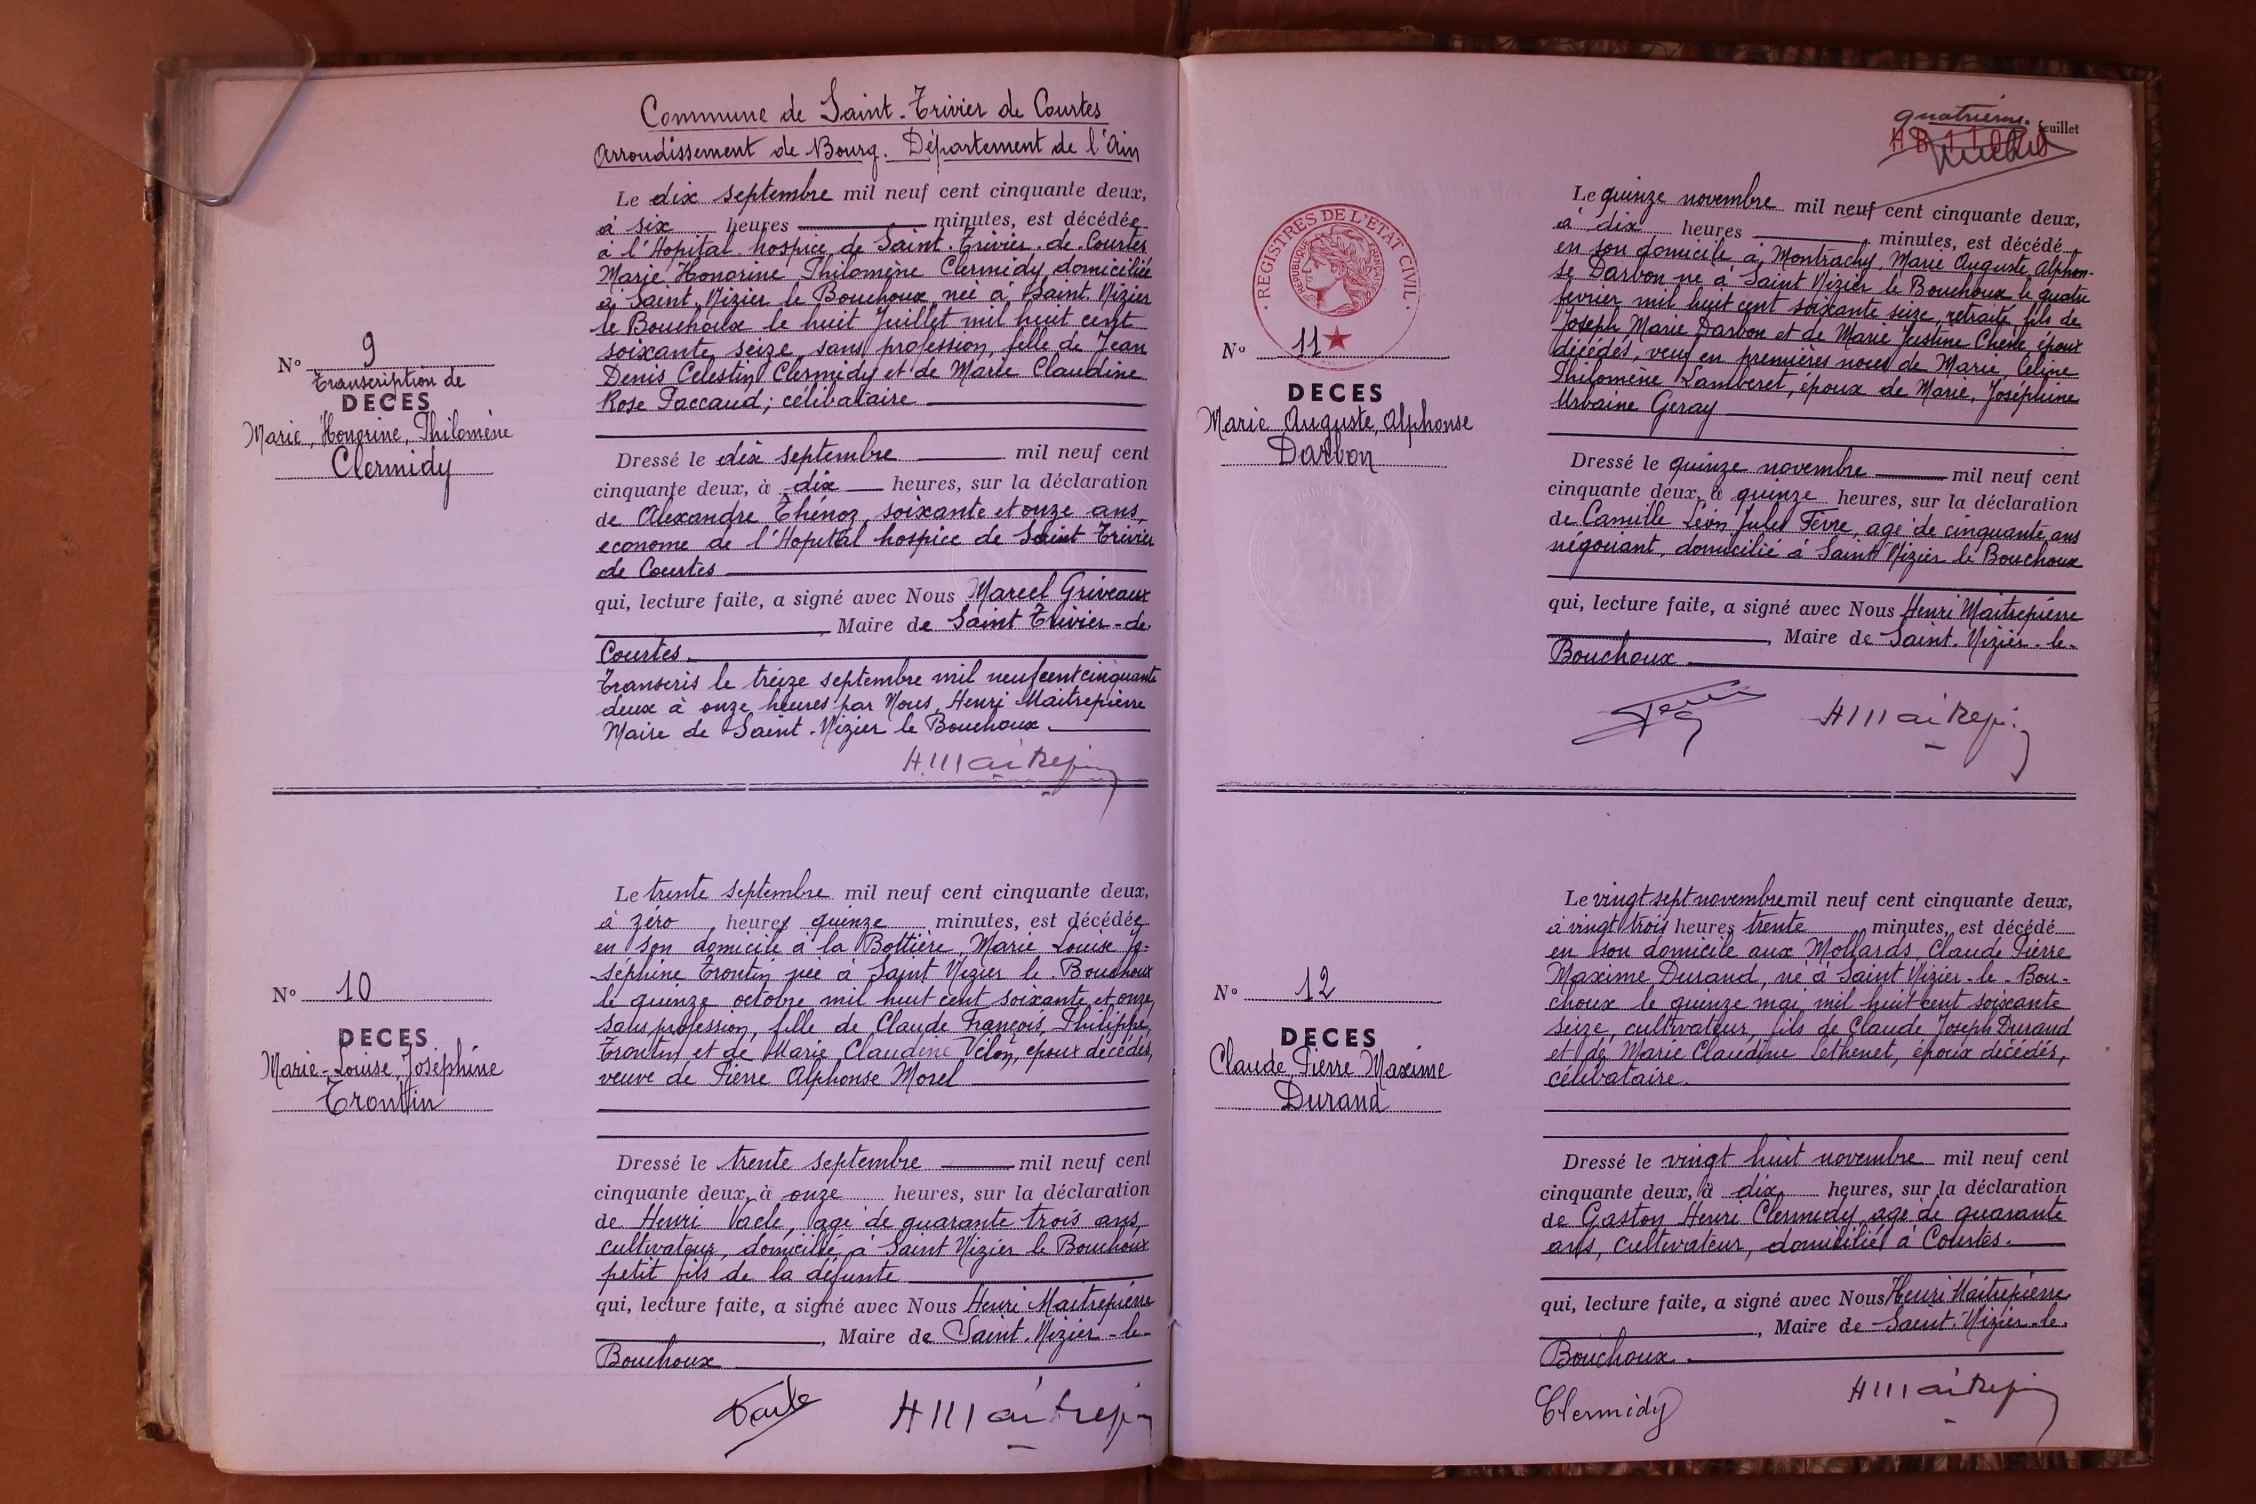 Commune de Saint-Trivier de Courtes
Arrondissement de Bourg. Département de l'Ain
Le dix septembre mil neuf cent cinquante deux,
à six heures minutes, est décédée
à l'Hopital hospice de Saint-Trivier-de-Courtes
Marie Honorine Philomène Clermidy domiciliée
à Saint Nizier le Bouchoux née à Saint Nizier
le Bouchoux le huit Juillet mil huit cent
soixante seize, sans profession, fille de Jean
Denis Célestin Clermidy et de Marie Claudine
Rose Paccaud; célibataire
N° 9
Transcription de
DECES
Marie, Honorine, Philomène
Clermidy
Dressé le dix septembre mil neuf cent
cinquante deux, à dix heures, sur la déclaration
de Alexandre Thénoz, soixante et onze ans,
econome de l'Hopital hospice de Saint Trivier
de Courtes
qui, lecture faite, a signé avec Nous Marcel Griveaux
, Maire de Saint Trivier-de
Courtes.
Transcris le treize septembre mil neuf cent cinquante
deux à onze heures par Nous, Henri Maitrepierre
Maire de Saint-Nizier le Bouchoux.
HMaitrepi
Le trente septembre mil neuf cent cinquante deux,
à zéro heures quinze minutes, est décédée
en son domicile à la Bottière, Marie Louise Jo-
séphine Trontin née à Saint Nizier le Bouchoux
le quinze octobre mil huit cent soixante et onze,
sans profession, fille de Claude François, Philippe
Trontin et de Marie Claudine Vélon, époux décédés,
veuve de Pierre Alphonse Morel
N° 10
DECES
Marie-Louise, Joséphine
Trontin
Dressé le trente septembre mil neuf cent
cinquante deux, à onze heures, sur la déclaration
de Henri Vacle, agé de quarante trois ans,
cultivateur, domicilié à Saint Nizier le Bouchoux
petit fils de la défunte
qui, lecture faite, a signé avec Nous Henri Maitrepierre
, Maire de Saint-Nizier-le-
Bouchoux
Vacle HMaitrepi
quatrième feuillet
REGISTRES DE L'ETAT CIVIL
Le quinze novembre mil neuf cent cinquante deux,
à dix heures minutes, est décédé
en son domicile à Montrachy, Marie Auguste Alphon-
se Darbon né à Saint Nizier le Bouchoux le quatre
février mil huit cent soixante seize, retraité, fils de
Joseph Marie Darbon et de Marie Justine Chêne époux
décédés, veuf en premières noces de Marie, Céline
Philomène Lamberet, époux de Marie, Joséphine
Urbaine Geray
N° 11
DECES
Marie Auguste, Alphonse
Darbon
Dressé le quinze novembre mil neuf cent
cinquante deux, à quinze heures, sur la déclaration
de Camille Léon Jules Fèvre, agé de cinquante ans
négociant, domicilié à Saint Nizier le Bouchoux
qui, lecture faite, a signé avec Nous Henri Maitrepierre
, Maire de Saint-Nizier-le-
Bouchoux
HMaitrepi
Le vingt sept novembre mil neuf cent cinquante deux,
à vingt trois heures trente minutes, est décédé
en son domicile aux Mollards Claude Pierre
Maxime Durand, né à Saint Nizier-le-Bou-
choux le quinze mai mil huit cent soixante
seize, cultivateur, fils de Claude Joseph Durand
et de Marie Claudine Lethenet, époux décédés,
célibataire.
N° 12
DECES
Claude, Pierre Maxime
Durand
Dressé le vingt huit novembre mil neuf cent
cinquante deux, à dix heures, sur la déclaration
de Gaston Henri Clermidy agé de quarante
ans, cultivateur, domicilié à Courtes.
qui, lecture faite, a signé avec Nous Henri Maitrepierre
, Maire de Saint-Nizier-le-
Bouchoux.
Clermidy HMaitrepi